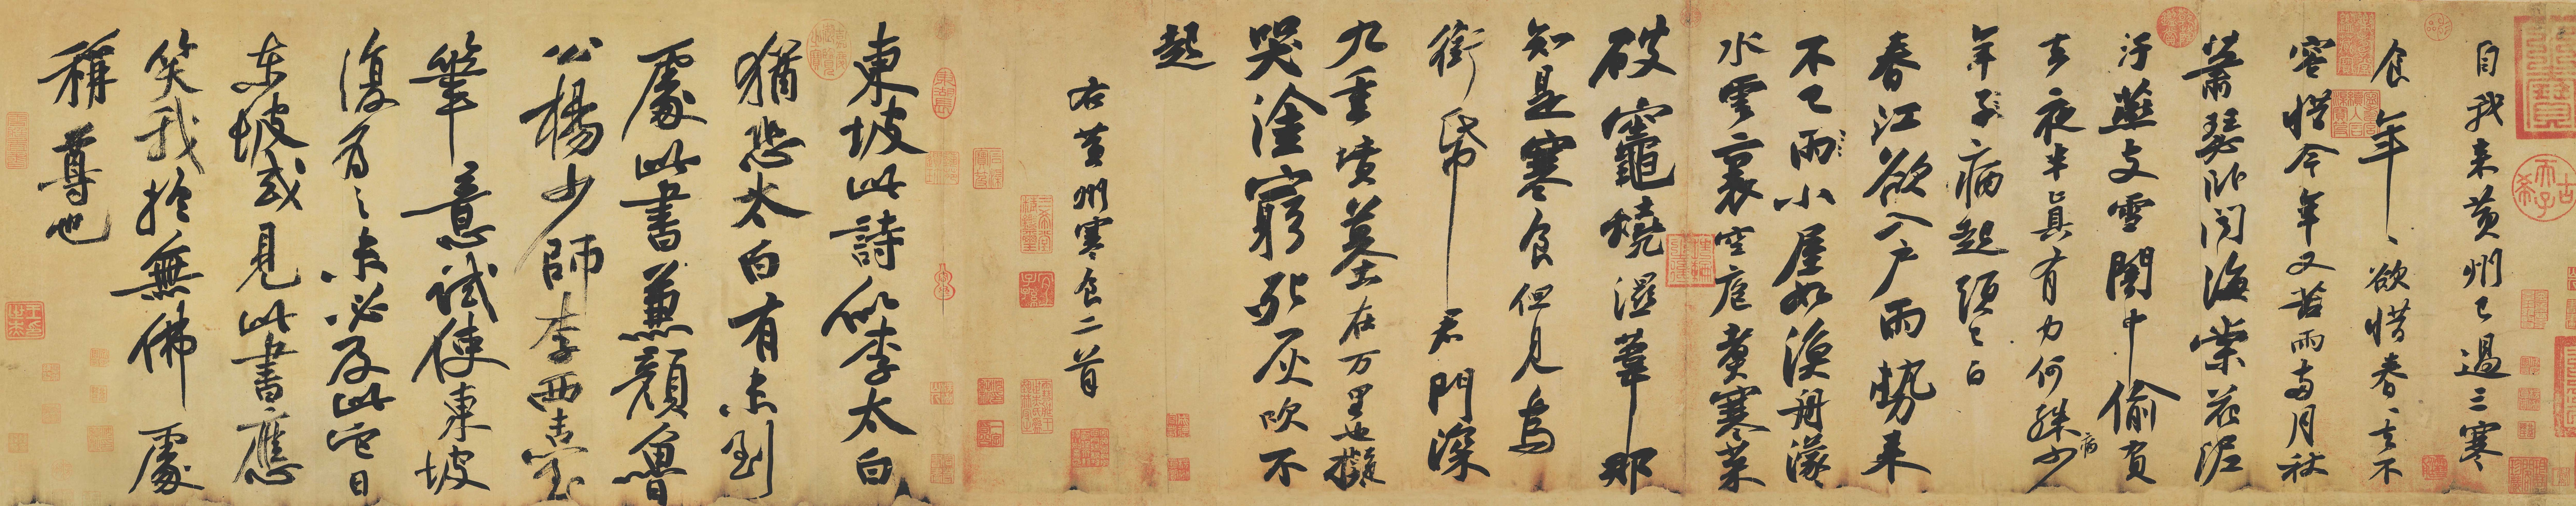 自我来黄州已過三寒
食年〻欲惜春〻去不
容惜今年又苦雨兩月秋
蕭瑟卧聞海棠花泥
汙燕支雪闇中偷負
去夜半真有力何殊少
病
年子病起頭已白
春江欲入戶雨勢来
不已雨小屋如漁舟濛〻
水雲裏空庖煮寒菜
破竈燒濕葦那
知是寒食但見烏
銜帋君門深
九重墳墓在万里也擬
哭塗窮死灰吹不
起
右黄州寒食二首
東坡此詩似李太白
猶恐太白有未到
處此書兼顏魯
公楊少師李西臺
筆意試使東坡
復為之未必及此它日
東坡或見此書應
笑我於無佛處
稱尊也